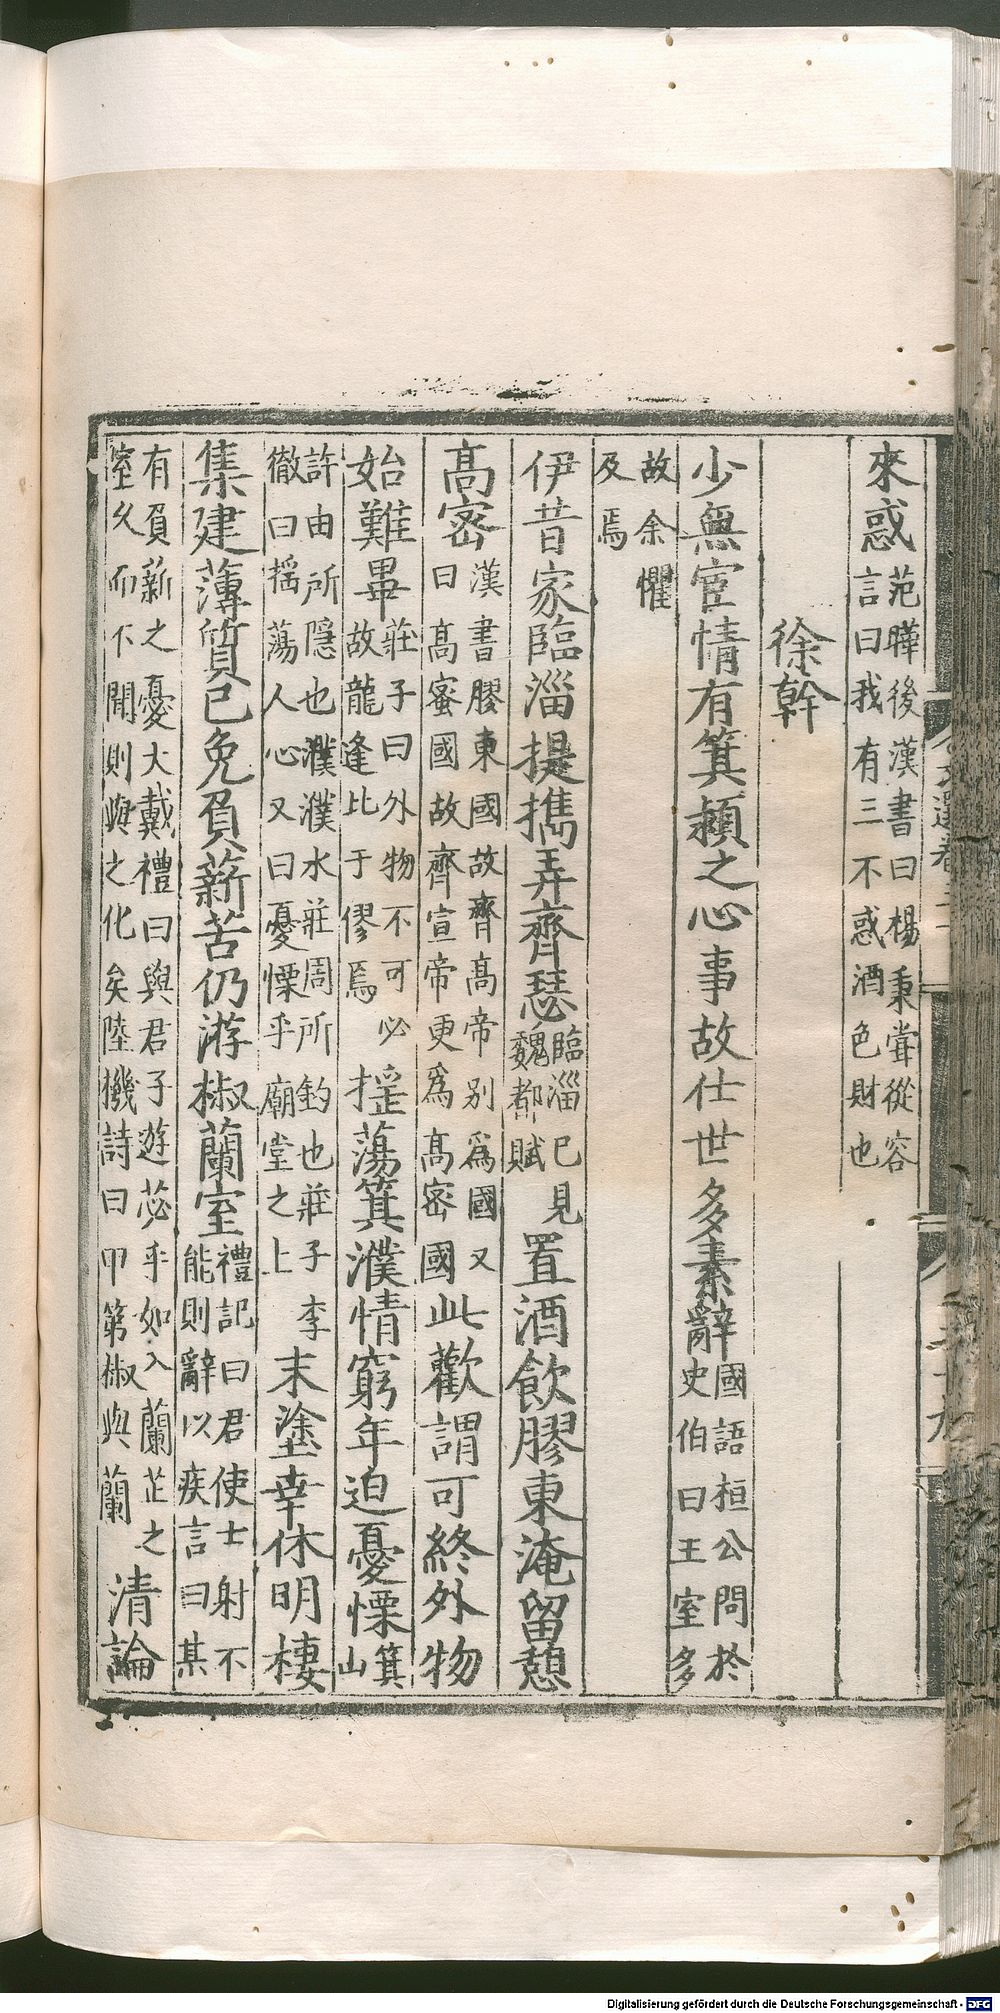 來惑范曄後漢書曰楊秉嘗從容言曰我有三不惑酒色財也
徐幹
少無宦情有箕潁之心事故仕世多素辭國語桓公問於史伯曰王室多
故余懼及焉
伊昔家臨淄提攜弄齊瑟臨淄已見魏都賦置酒飲膠東淹留憩
高密漢書膠東國故齊高帝別爲國又曰高蜜國故齊宣帝更爲高密國此歡謂可終外物
始難畢莊子曰外物不可必故龍逢比于僇焉搖蕩箕濮情窮年迫憂慄箕山
許由所隱也濮濮水莊周所釣也莊子李徹曰搖蕩人心又曰憂慄乎廟堂之上末塗幸休明棲
集建薄質已免負薪苦仍游椒蘭室禮記曰君使士射不能則辭以疾言曰某
有負薪之憂大戴禮曰與君子遊苾乎如入蘭芷之室久而不聞則與之化矣陸機詩曰甲第椒與蘭清論
Digitalisierung gefördert durch die Deutsche Forschungsgemeinschaft - DFG